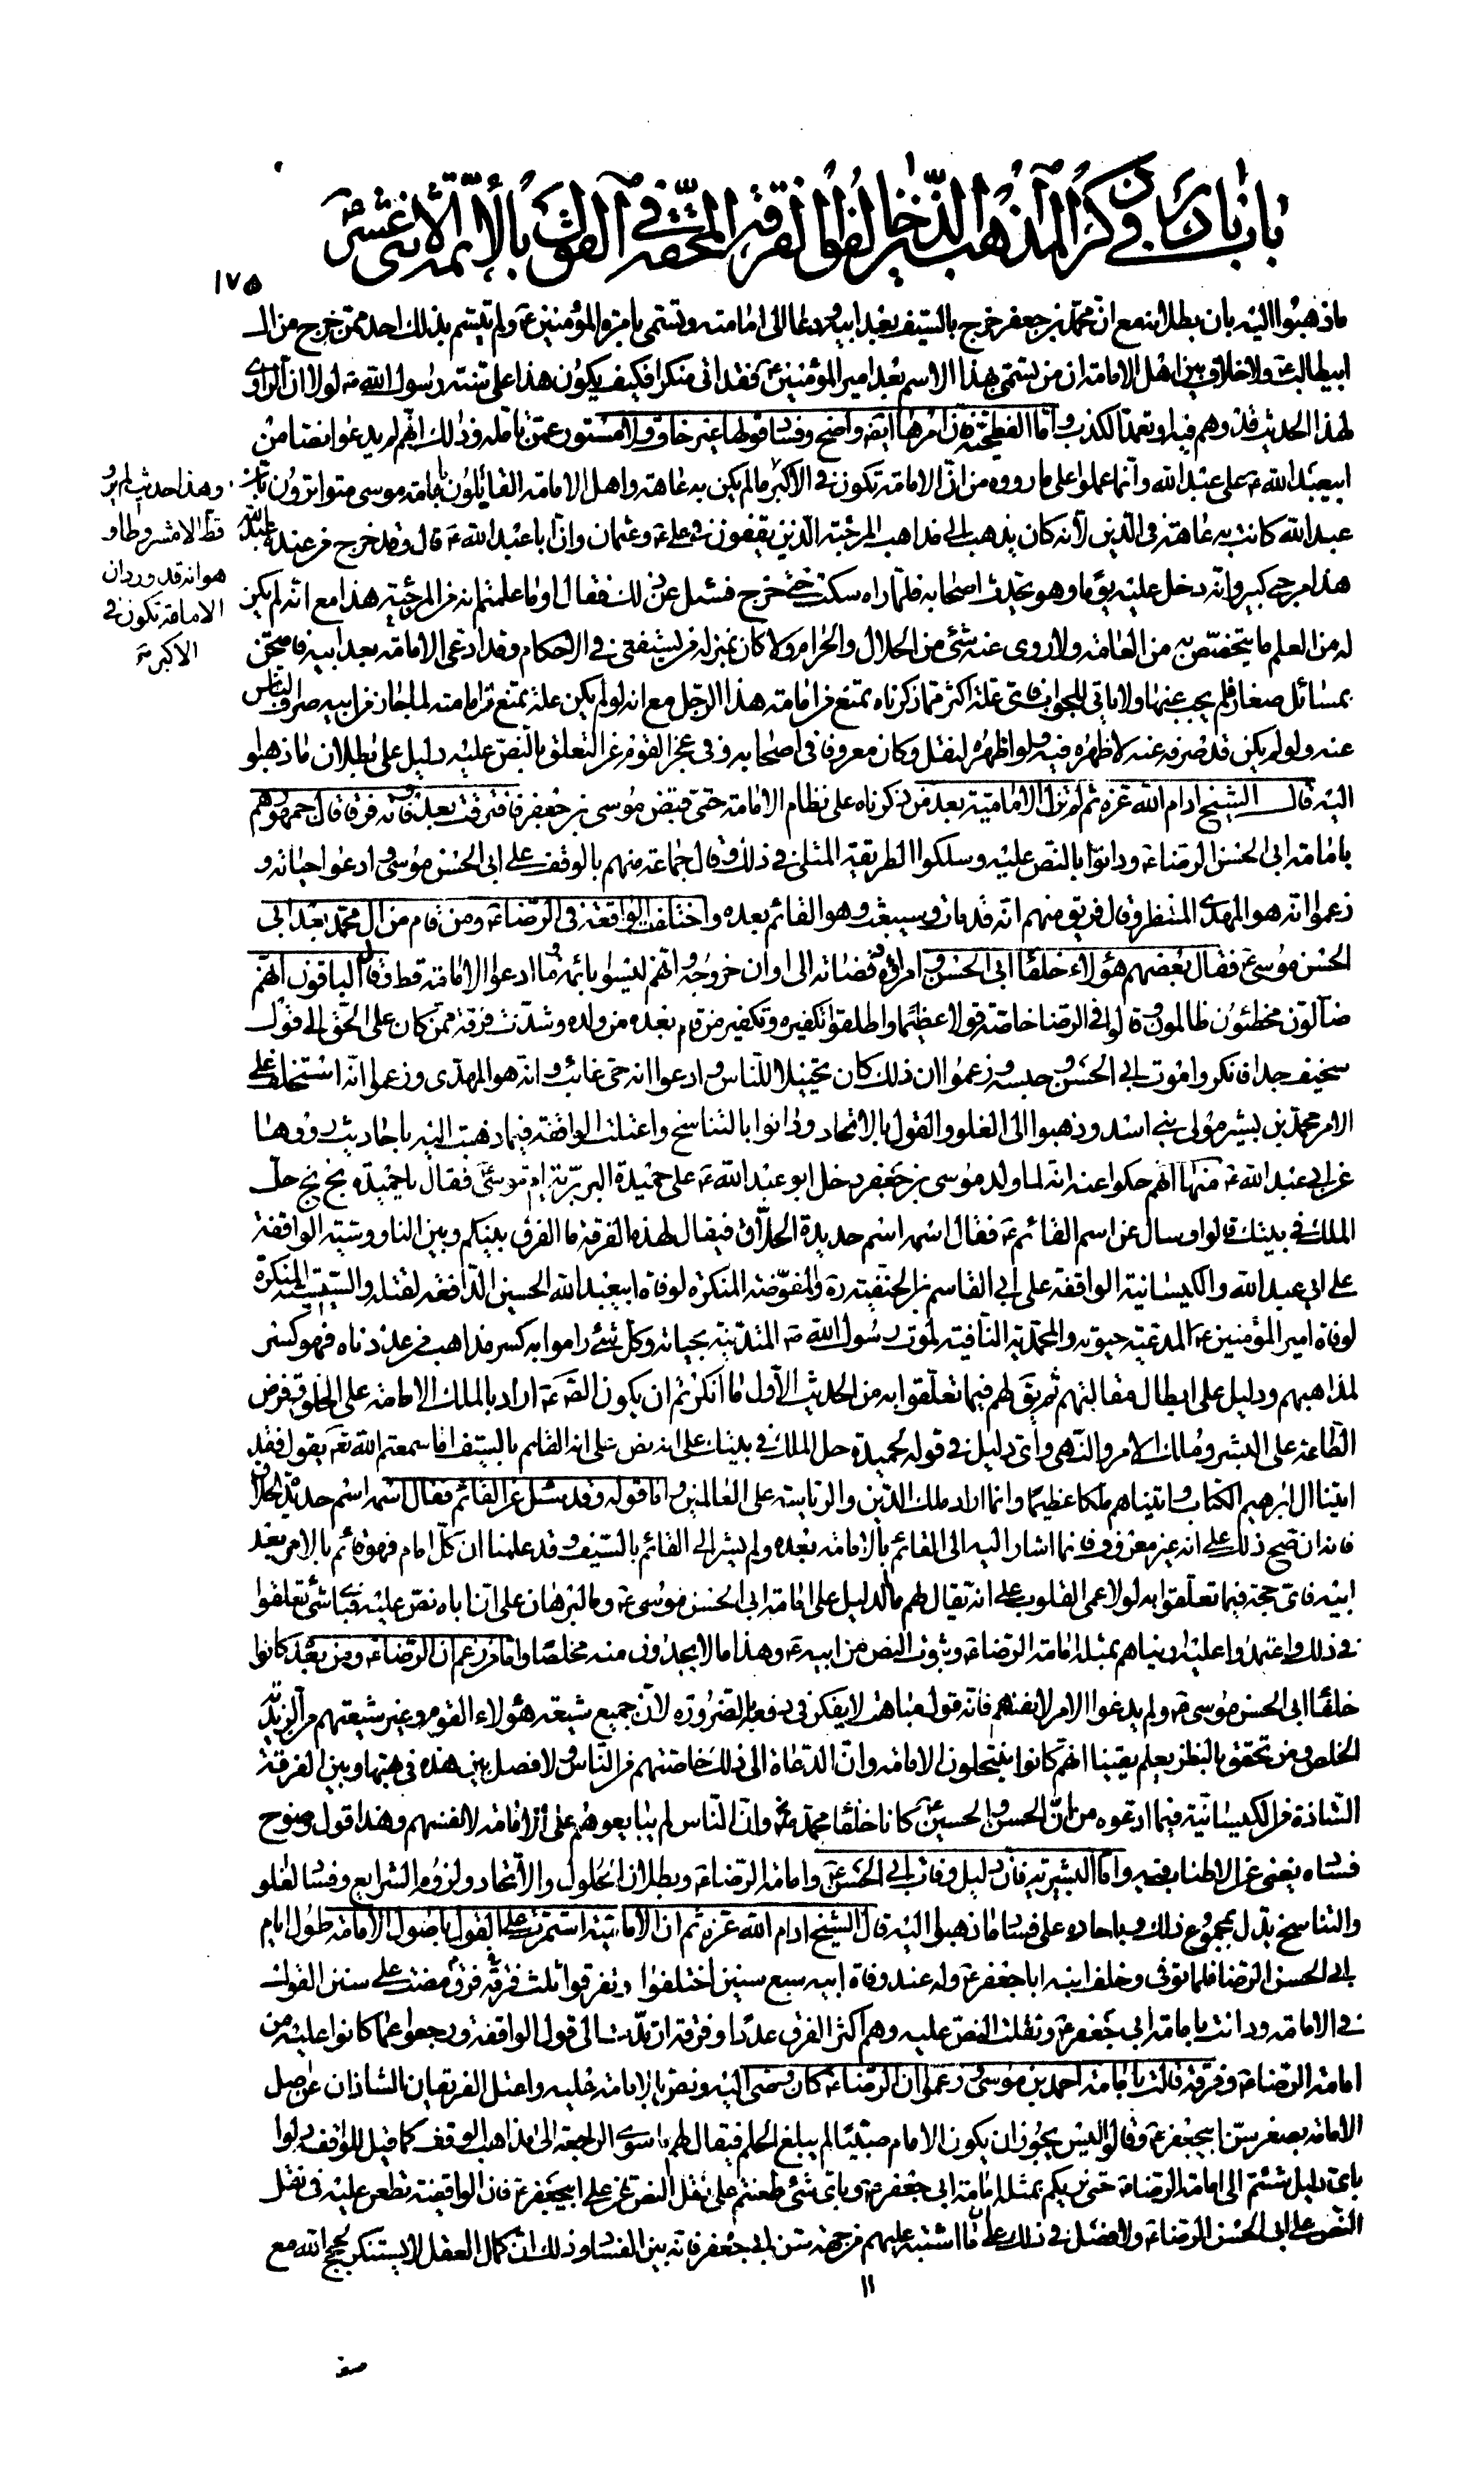 باب نادر في ذكر المذاهب الذين خالفوا الفرقة المحقة في القول بالأئمة الاثنى عشر
١٧٥
ما ذهبوا اليه بان بطلانه مع ان محمد بن جعفر خرج بالسيف بعد ابيه ودعا الى امامته وتسمى بامرة المؤمنين ع ولم يتسم بذلك احد ممن خرج من ال
ابيطالب ع ولا خلاف بين اهل الامامة ان من تسمى بهذا الاسم بعد امير المؤمنين ع فقد اتى منكرا فكيف يكون هذا على سنة رسول الله ص لولا ان الراوى
لهذا الحديث قد وهم فيه او تعمد الكذب واما الفطحية فان امرها ايضا واضح وفساد قولها غير خاف ولا مستور عمن تامله وذلك انهم لم يدعوا نصا من
ابيعبد الله ع على عبد الله وانما عملوا على ما رووه من ان الامامة تكون في الاكبر ما لم يكن به عاهة واهل الامامة القائلون بامامة موسى متواترون بان
وهذا حديث لم يرو
قط الا مشروطا و
هو انه قد ورد ان
الامامة تكون في
الاكبر
عبد الله كانت به عاهة في الدين لانه كان يذهب الى مذاهب المرجئة الذين يقفون في على ع وعثمان وان ابا عبد الله ع قال وقد خرج من عنده عبد الله
هذا مرجئ كبير وانه دخل عليه يوما وهو يحدث اصحابه فلما راه سكت حتى خرج فسئل عن ذلك فقال اوما علمتم انه من المرجئة هذا مع انه لم يكن
له من العلم ما يتخصص به من العامة ولا روى عنه شئ من الحلال والحرام ولا كان بمنزلة من يستفتى في الاحكام وقد ادعى الامامة بعد ابيه فامتحن
بمسائل صغار فلم يجب عنها ولا ياتى للجواب فاى علة اكثر مما ذكرناه تمنع من امامة هذا الرجل مع انه لو لم يكن علة تمنع من امامته لما جاز من ابيه صرف النص
عنه ولو لم يكن قد صرفه عنه لاظهره فيه ولو اظهره لنقل وكان معروفا في اصحابه وفي عجز القوم عن التعلق بالنص عليه دليل على بطلان ما ذهبوا
اليه قال الشيخ ادام الله عزه ثم لم تزل الامامية بعد من ذكرناه على نظام الامامة حتى قبض موسى بن جعفر فافترقت بعد وفاته فرقا قال جمهورهم
بامامة ابى الحسن الرضا ع ودانوا بالنص عليه وسلكوا الطريقة المثلى في ذلك وقال جماعة منهم بالوقف على ابى الحسن موسى وادعوا حياته و
زعموا انه هو المهدى المنتظر وقال فريق منهم انه قد مات وسيبعث وهو القائم بعده واختلفت الواقفة في الرضا ع ومن قام من ال محمد بعد ابى
الحسن موسى ع فقال بعضهم هؤلاء خلفاء ابى الحسن وامراؤه وقضاته الى اوان خروجه وانهم ليسوا بائمة وما ادعوا الامامة قط وقال الباقون انهم
ضالون مخطئون ظالمون وقالوا في الرضا خاصة قولا عظيما واطلقوا تكفيره وتكفير من قام بعده من ولده وشذت فرقة ممن كان على الحق الى قول
سخيف جدا فانكروا موت ابى الحسن وحبسه وزعموا ان ذلك كان تخييلا للناس وادعوا انه حى غائب وانه هو المهدى وزعموا انه استخلف على
الامر محمد بن بشير مولى بنى اسد وذهبوا الى الغلو والقول بالاتحاد ودانوا بالتناسخ واعتلت الواقفة فيما ذهبت اليه باحاديث رووها
عن ابى عبد الله ع منها انهم حكوا عنه انه لما ولد موسى بن جعفر دخل ابو عبد الله ع على حميدة البربرية ام موسى فقال يا حميدة بخ بخ حل
الملك في بيتك قالوا وسال عن اسم القائم ع فقال اسمه اسم حديدة الحلاق فيقال لهذه الفرقة ما الفرق بينكم وبين الناووسية الواقفة
على ابى عبد الله والكيسانية الواقفة على ابى القاسم بن الحنفية ره والمفوضة المنكرة لوفاة ابيعبد الله الحسين الدافعة لقتله والسبئية المنكرة
لوفاة امير المؤمنين ع المدعية حيوته والمحمدية النافية لموت رسول الله ص المتدينة بحياته وكل شئ راموا به كسر مذاهب من عددناه فهو كسر
لمذاهبهم ودليل على ابطال مقالتهم ثم يق لهم فيما تعلقوا به من الحديث الاول ما انكرتم ان يكون الص ع اراد بالملك الامامة على الخلق وفرض
الطاعة على البشر وملك الامر والنهى واى دليل في قوله لحميدة حل الملك في بيتك على انه نص على انه القائم بالسيف اما سمعتم الله تع يقول فقد
اتينا ال ابرهيم الكتاب واتيناهم ملكا عظيما وانما اراد ملك الدين والرياسة على العالمين واما قوله وقد سئل عن القائم فقال اسمه اسم حديدة الحلاق
فانه ان صح ذلك على انه غير معروف فانما اشار اليه الى القائم بالامامة بعده ولم يشر الى القائم بالسيف وقد علمنا ان كل امام فهو قائم بالامر بعد
ابيه فاى حجة فيما تعلقوا به لولا عمى القلوب على انه يقال لهم ما الدليل على امامة ابى الحسن موسى ع وما البرهان على ان اباه نص عليه فباى شئ تعلقوا
في ذلك واعتمدوا عليه اريناهم بمثله امامة الرضا ع وثبوت النص من ابيه ع وهذا ما لا يجدون منه مخلصا واما من زعم ان الرضا ع ومن بعده كانوا
خلفاء ابى الحسن موسى ع ولم يدعوا الامر لانفسهم فانه قول مباهت لا يفكر في دفعه بالضرورة لان جميع شيعة هؤلاء القوم وغير شيعتهم من الزيدية
الخلص ومن تحقق بالنظر يعلم يقينا انهم كانوا ينتحلون الامامة وان الدعاة الى ذلك خاصتهم من الناس ولا فصل بين هذه في بهتها وبين الفرقة
الشاذة من الكيسانية فيما ادعوه من ان الحسن والحسين ع كانا خلفاء محمد وان الناس لم يبايعوهم على الامامة لانفسهم وهذا قول وضوح
فساده يغنى عن الاطناب فيه واما البشيرية فان دليل وفات ابى الحسن ع وامامة الرضا ع وبطلان الحلول والاتحاد ولزوم الشرايع وفساد الغلو
والتناسخ يدل بمجموع ذلك وباحاده على فساد ما ذهبوا اليه قال الشيخ ادام الله عزه ثم ان الامامية استمرت على القول باصول الامامة طول ايام
ابى الحسن الرضا فلما توفى وخلف ابنه ابا جعفر ع وله عند وفاة ابيه سبع سنين اختلفوا وتفرقوا ثلث فرق فرقة مضت على سنن القول
في الامامة ودانت بامامة ابى جعفر ع ونقلت النص عليه وهم اكثر الفرق عددا وفرقة ارتدت الى قول الواقفة ورجعوا عما كانوا عليه من
امامة الرضا ع وفرقة قالت بامامة احمد بن موسى وزعموا ان الرضا ع كان وصى اليه ونص بالامامة عليه واعتل الفريقان الشاذان عن اصل
الامامة بصغر سن ابيجعفر ع وقالوا ليس يجوز ان يكون الامام صبيا لم يبلغ الحلم فيقال لهم ما سوى الراجعة الى مذاهب الوقف كما قيل للواقفة دلوا
باى دليل شئتم الى امامة الرضا ع حتى نريكم بمثله امامة ابى جعفر ع وباى شئ طعنتم على نقل النص على ابيجعفر ع فان الواقفة تطعن عليه في نقل
النص على ابى الحسن الرضا ع ولا فصل في ذلك على ان ما اشتبه عليهم من جهة سن ابى جعفر فانه بين الفساد وذلك ان كمال العقل لا يستنكر لحجج الله مع
١١
صغر